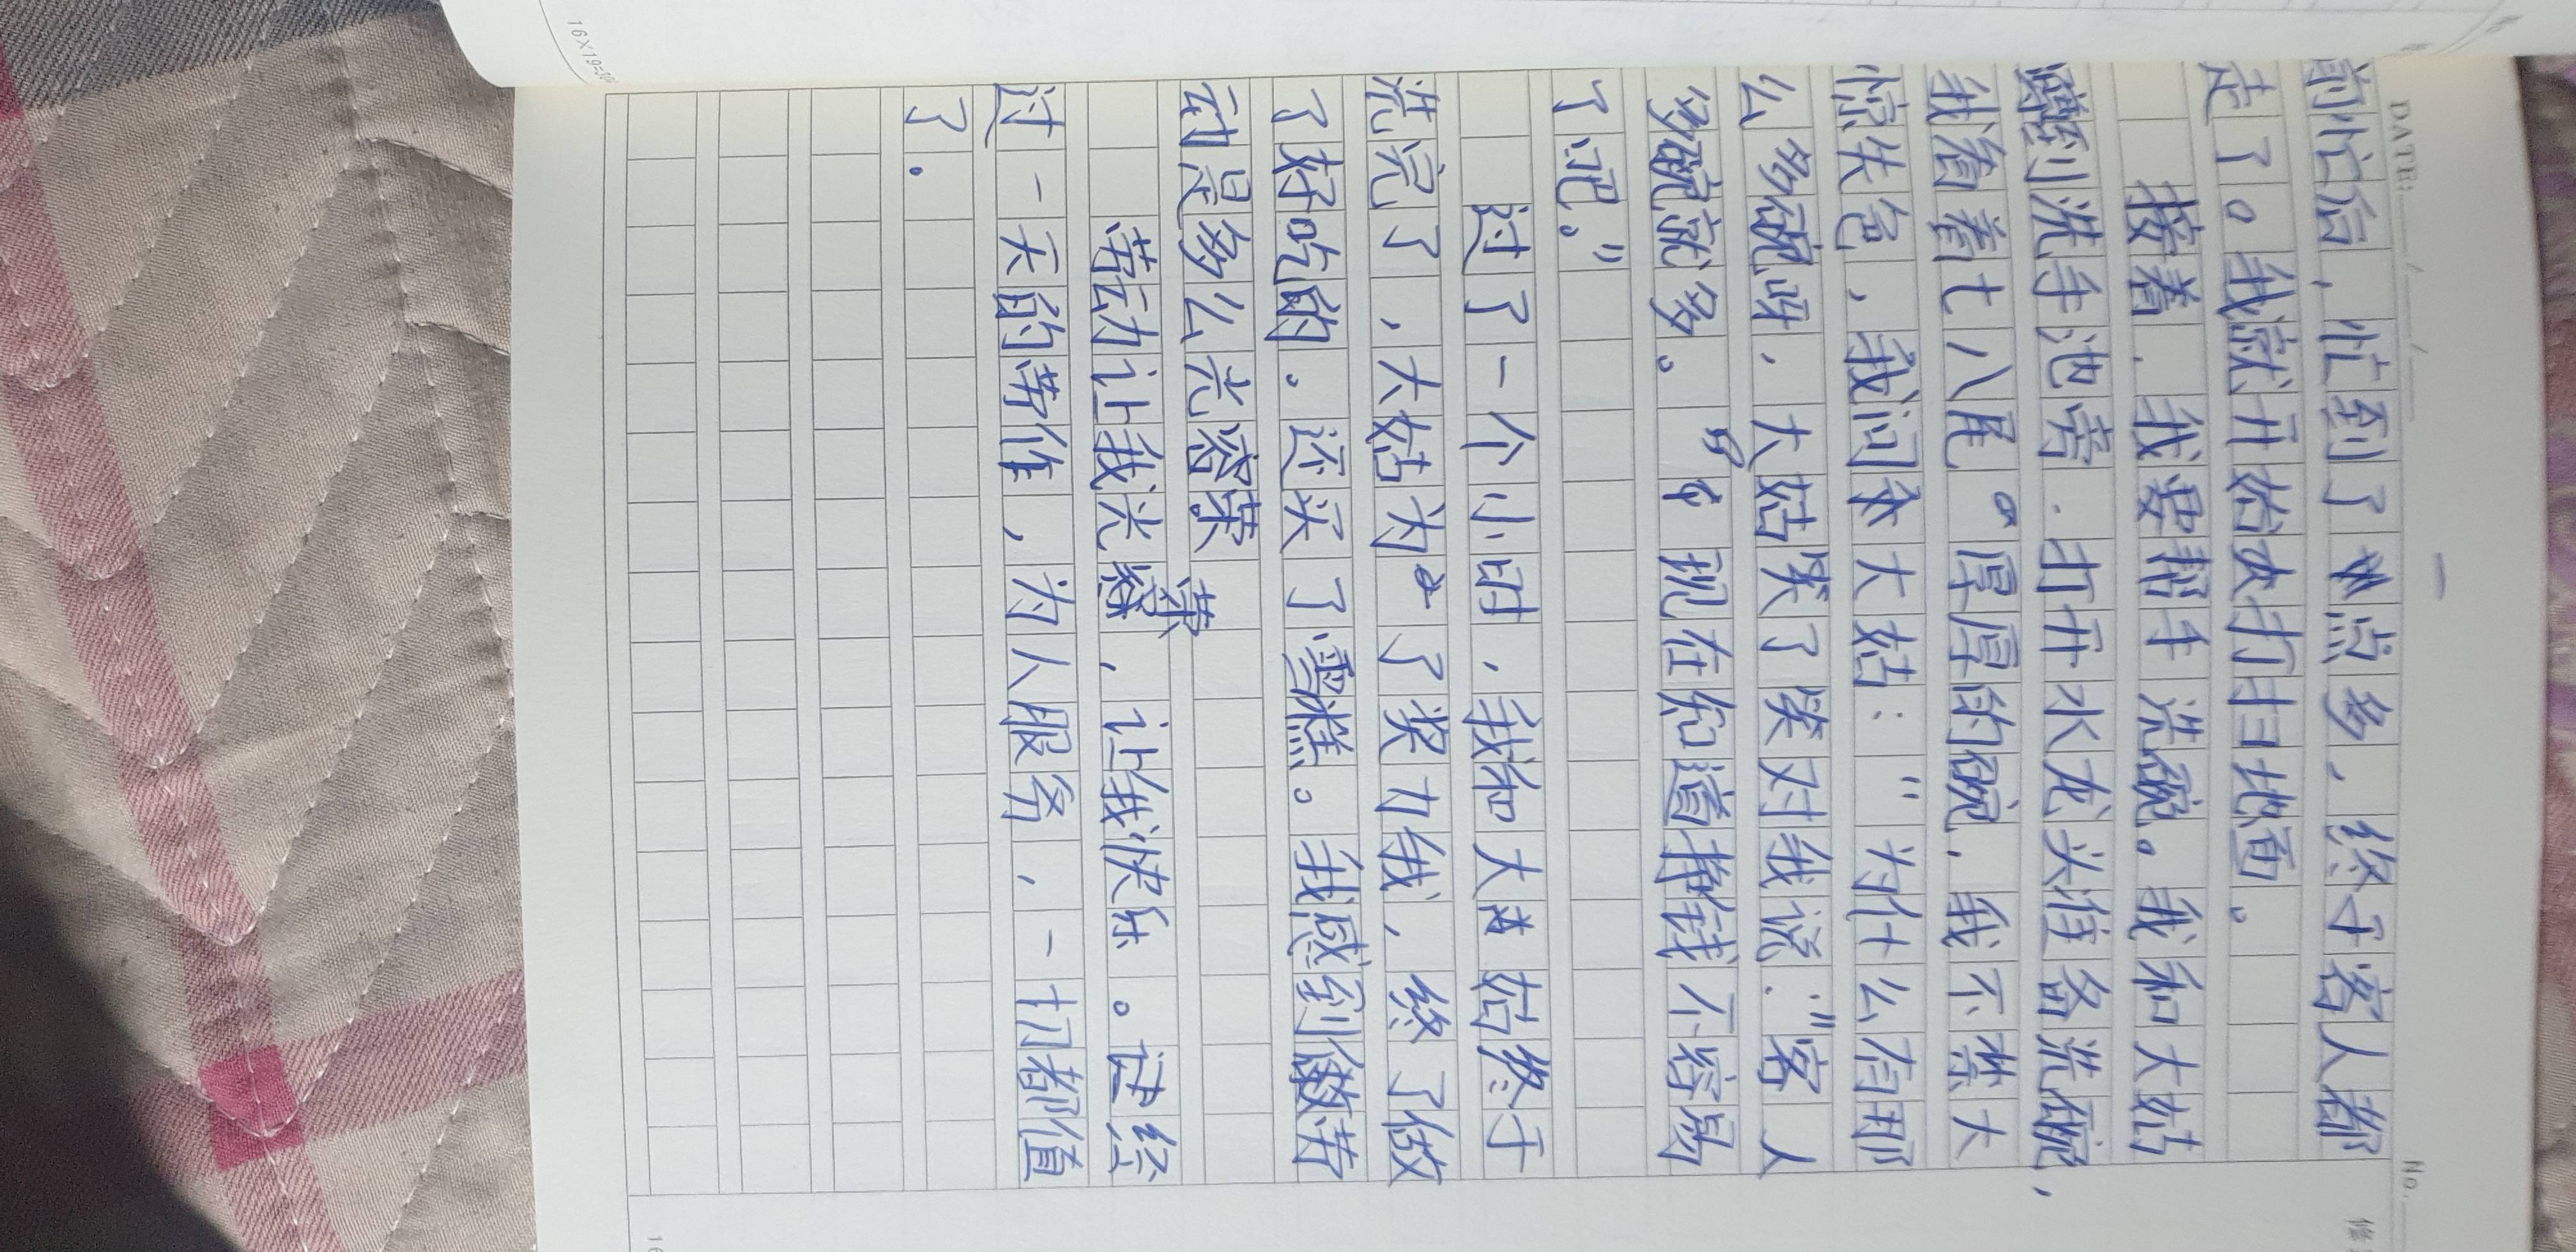 DATE: / /
No.
前忙后，忙到了点多，终于客人都
走了。我就开始打扫地面。
接着，我要帮手洗碗。我和大姑
蹲到洗手池旁．打开水龙头准备洗碗，
我看着七八尾厚厚的碗，我不禁大
惊失色，我问大姑：“为什么有那
么多碗呀，大姑笑了笑对我说：“客人
多碗就多。“现在知道挣钱不容易
了吧。”
过了一个小时，我和大姑终于
洗完了，大姑为了奖力我，终了做
了好吃的。还买了雪糕。我感到劳
动是多么光荣
劳动让我光荣，让我快乐。过经
过一天的劳作，为人服务，一切都值
了．
16X19=304